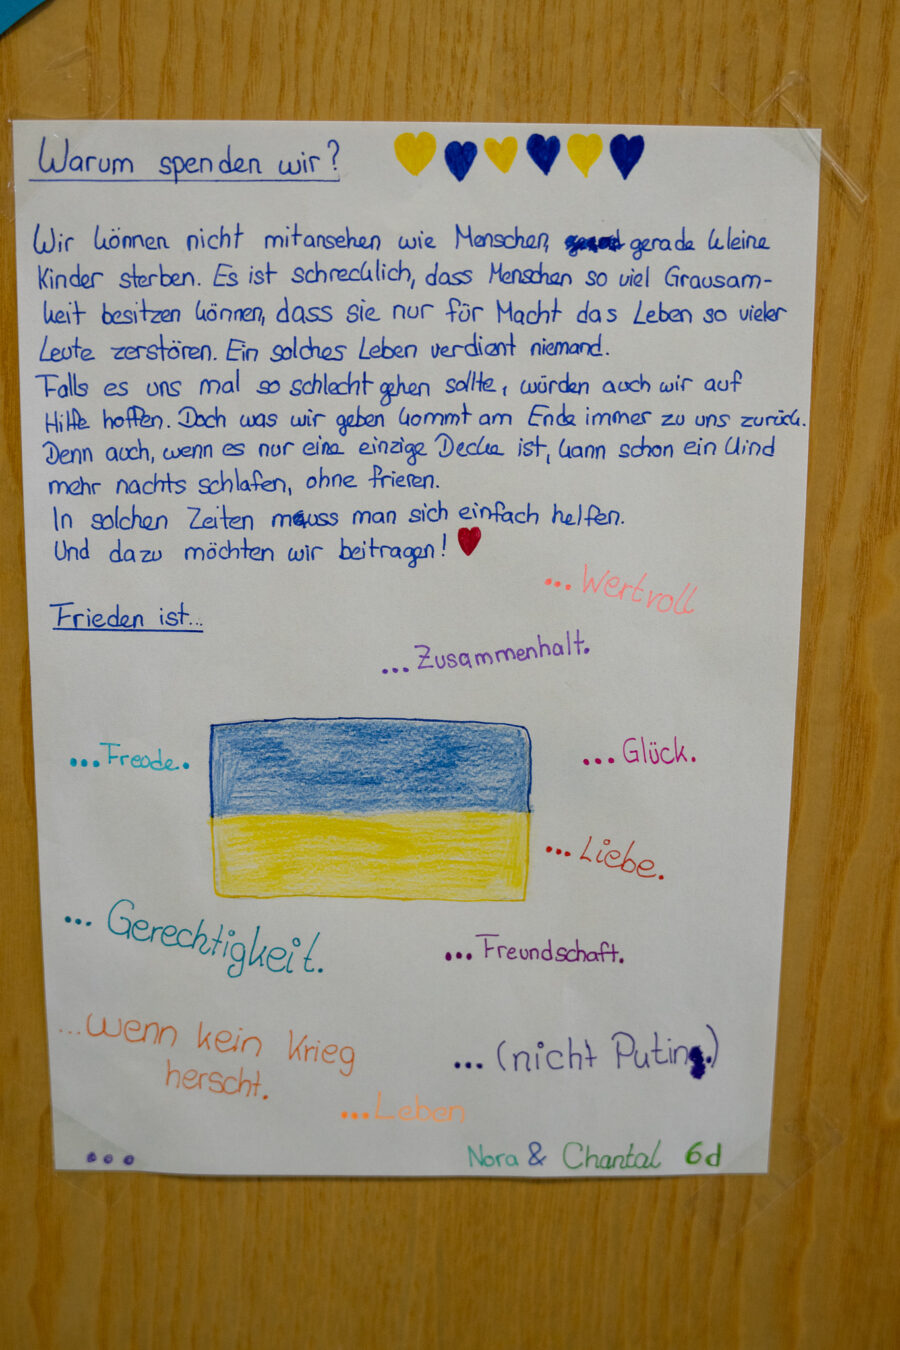 Warum spenden wir?
Wir können nicht mitansehen wie Menschen, gerade kleine
Kinder sterben. Es ist schrecklich, dass Menschen so viel Grausam-
keit besitzen können, dass sie nur für Macht das Leben so vieler
Leute zerstören. Ein solches Leben verdient niemand.
Falls es uns mal so schlecht gehen sollte, würden auch wir auf
Hilfe hoffen. Doch was wir geben kommt am Ende immer zu uns zurück.
Denn auch, wenn es nur eine einzige Decke ist, kann schon ein Kind
mehr nachts schlafen, ohne frieren.
In solchen Zeiten muss man sich einfach helfen.
Und dazu möchten wir beitragen!
...Wertvoll
Frieden ist...
...Zusammenhalt.
...Freude.
...Glück.
...Liebe.
...Gerechtigkeit.
...Freundschaft.
...wenn kein Krieg
herscht.
...(nicht Putin.)
...Leben
...
Nora & Chantal 6d